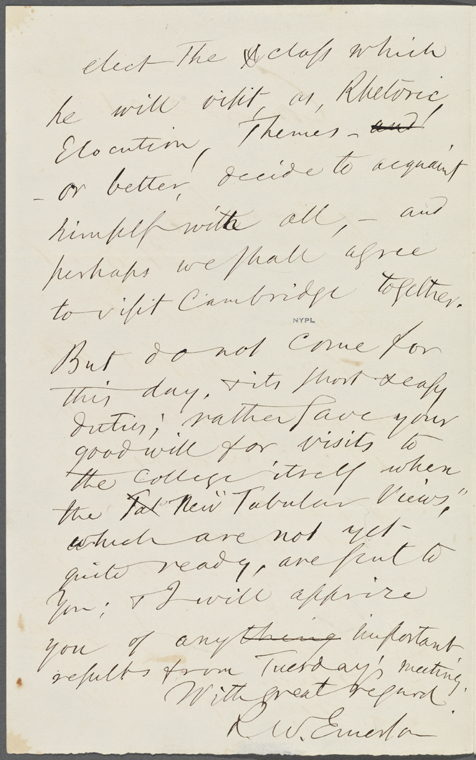 elect the class which
he will visit, as, Rhetoric,
Elocution, Themes, - and
- or better, decide to acquaint
himself with all, - and
perhaps we shall agree
to visit Cambridge together.
NYPL
But do not come for
this day, & its short & easy
duties; rather save your
good will for visits to
the College itself when
the Tab New "Tabular Views,"
which are not yet
quite ready, are sent to
you; & I will apprize
you of anything important
results from Tuesday's meeting.
With great regard
R. W. Emerson